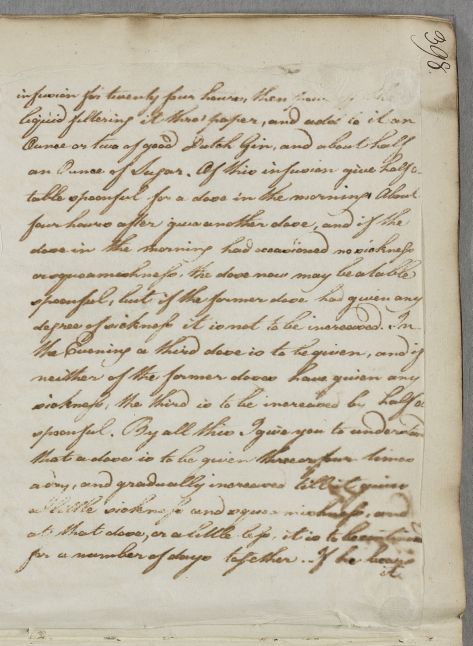 398.
infusion for twenty four hours, then pour off the
liquid filtering it thro' paper, and add to it an
Ounce or two of good Dutch Gin, and about half
an Ounce of Sugar. Of this infusion give half a
table spoonful for a dose in the morning. About
four hours after give another dose, and if the
dose in the morning had occasioned no sickness
or squeamishness, the dose now may be a table
spoonful, but if the former dose had given any
degree of sickness it is not to be increased. In
the Evening a third dose is to be given, and if
neither of the former doses have given any
sickness, the third is to be increased by half a
spoonful. By all this I give you to understand
that a dose is to be given three or four times
a day, and gradually increased till it gives
a little sickness and squeamishness, and
at that dose, or a little less, it is to be continued
for a number of days together. If he bears
it